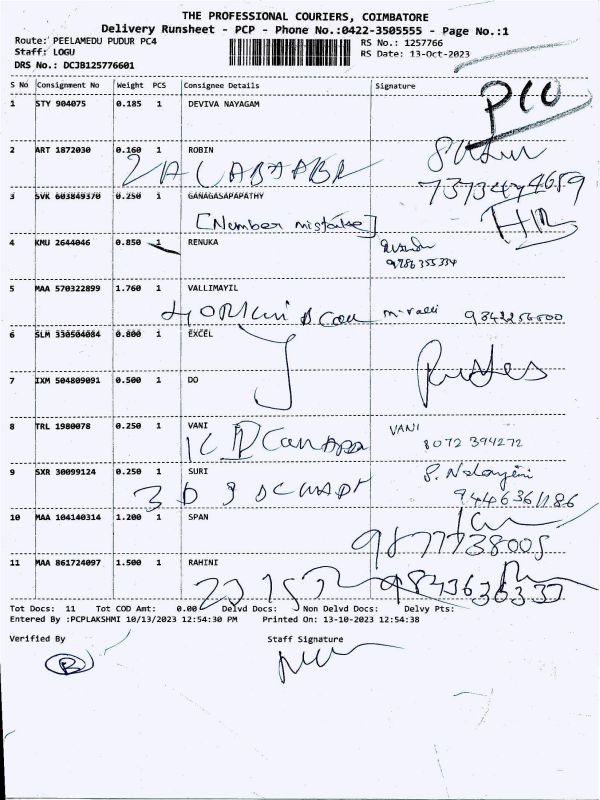 THE PROFESSIONAL COURIERS, COIMBATORE
Delivery Runsheet - PCP - Phone No.:0422-3505555 - Page No.:1
Route: PEELAMEDU PUDUR PC4
RS No.: 1257766
Staff: LOGU
RS Date: 13-Oct-2023
DRS No.: DCJB125776601
S No Consignment No Weight PCS Consignee Details Signature
1 STY 904075 0.185 1 DEVIVA NAYAGAM
2 ART 1872030 0.160 1 ROBIN
3 SVK 603849370 0.250 1 GANAGASAPAPATHY
[Number mistake]
4 KMU 2644046 0.850 1 RENUKA
9786355334
5 MAA 570322899 1.760 1 VALLIMAYIL
m. valli 9842256500
6 SLM 330504084 0.800 1 EXCEL
7 IXM 504809091 0.500 1 DO
8 TRL 1980078 0.250 1 VANI VANI
8072 394272
9 SXR 30099124 0.250 1 SURI
10 MAA 104140314 1.200 1 SPAN
11 MAA 861724097 1.500 1 RAHINI
Tot Docs: 11 Tot COD Amt: 0.00 Delvd Docs: Non Delvd Docs: Delvy Pts:
Entered By :PCPLAKSHMI 10/13/2023 12:54:30 PM Printed On: 13-10-2023 12:54:38
Verified By Staff Signature